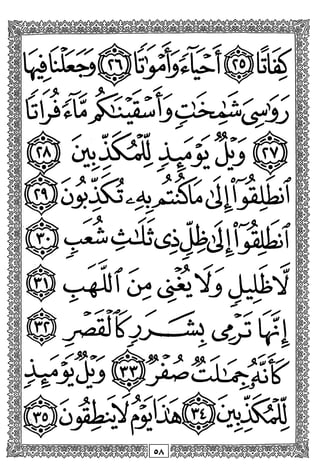 كِفَاتًا ٢٥ أَحْيَآءً وَأَمْوَٰتًا ٢٦ وَجَعَلْنَا فِيهَا
رَوَٰسِىَ شَـٰمِخَـٰتٍ وَأَسْقَيْنَـٰكُم مَّآءً فُرَاتًا
٢٧ وَيْلٌ يَوْمَئِذٍ لِّلْمُكَذِّبِينَ ٢٨
ٱنطَلِقُوٓا۟ إِلَىٰ مَا كُنتُم بِهِۦ تُكَذِّبُونَ ٢٩
ٱنطَلِقُوٓا۟ إِلَىٰ ظِلٍّ ذِى ثَلَـٰثِ شُعَبٍ ٣٠
لَّا ظَلِيلٍ وَلَا يُغْنِى مِنَ ٱللَّهَبِ ٣١
إِنَّهَا تَرْمِى بِشَرَرٍ كَٱلْقَصْرِ ٣٢
كَأَنَّهُۥ جِمَـٰلَتٌ صُفْرٌ ٣٣ وَيْلٌ يَوْمَئِذٍ
لِّلْمُكَذِّبِينَ ٣٤ هَـٰذَا يَوْمُ لَا يَنطِقُونَ ٣٥
٥٨